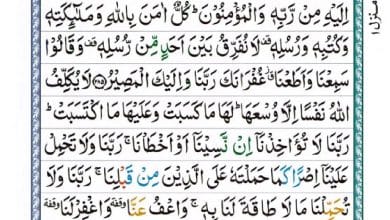 اِلَيْهِ مِنْ رَّبِّهٖ وَالْمُؤْمِنُوْنَ ؕ كُلٌّ اٰمَنَ بِاللّٰهِ وَمَلٰٓئِكَتِهٖ
وَكُتُبِهٖ وَرُسُلِهٖ ۫ لَا نُفَرِّقُ بَيْنَ اَحَدٍ مِّنْ رُّسُلِهٖ ۫ وَقَالُوْا
سَمِعْنَا وَاَطَعْنَا ٭ۗ غُفْرَانَكَ رَبَّنَا وَاِلَيْكَ الْمَصِيْرُ ﴿۲۸۵﴾ لَا يُكَلِّفُ
اللّٰهُ نَفْسًا اِلَّا وُسْعَهَا ؕ لَهَا مَا كَسَبَتْ وَعَلَيْهَا مَا اكْتَسَبَتْ ؕ
رَبَّنَا لَا تُؤَاخِذْنَاۤ اِنْ نَّسِيْنَاۤ اَوْ اَخْطَاْنَا ۚ رَبَّنَا وَلَا تَحْمِلْ
عَلَيْنَاۤ اِصْرًا كَمَا حَمَلْتَهٗ عَلَى الَّذِيْنَ مِنْ قَبْلِنَا ۚ رَبَّنَا وَلَا
تُحَمِّلْنَا مَا لَا طَاقَةَ لَنَا بِهٖ ۚ وَاعْفُ عَنَّا ٙ وقفة وَاغْفِرْ لَنَا ٙ وقفة
منزل ۱